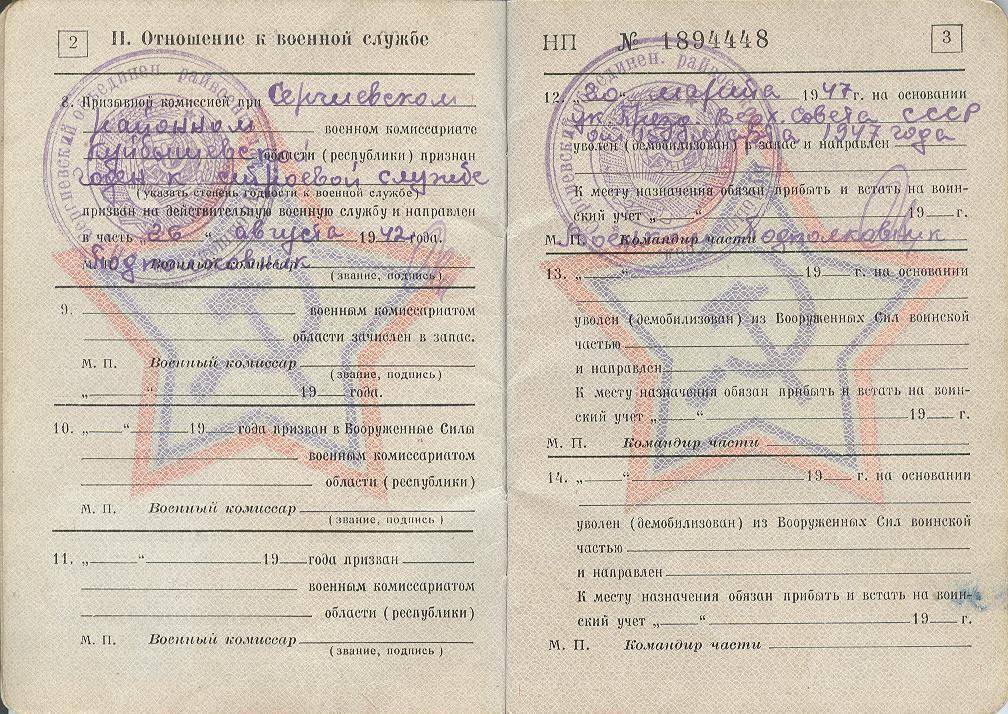 2
II. Отношение к военной службе
8. Призывной комиссией при Сергиевском
районном военном комиссариате
Куйбышевской области (республики) признан
годен к строевой службе
(указать степень годности к военной службе)
призван на действительную военную службу и направлен
в часть „26“ августа 1942 года.
М. П. Военный комиссар
Подполковник
(звание, подпись)
9.
военным комиссариатом
области зачислен в запас.
М. П. Военный комиссар
(звание, подпись)
„ “ 19 года.
10. „ “ 19 года призван в Вооруженные Силы
военным комиссариатом
области (республики)
М. П. Военный комиссар
(звание, подпись)
11. „ “ 19 года призван
военным комиссариатом
области (республики)
М. П. Военный комиссар
(звание, подпись)
НП № 1894448
3
12. „20“ марта 1947 г. на основании
ук. През. Верх. Совета СССР
марта 1947 года
уволен (демобилизован) в запас и направлен
К месту назначения обязан прибыть и встать на воин-
ский учет „ “ 19 г.
М. П. Командир части Подполковник
13. „ “ 19 г. на основании
уволен (демобилизован) из Вооруженных Сил воинской
частью
и направлен
К месту назначения обязан прибыть и встать на воин-
ский учет „ “ 19 г.
М. П. Командир части
14. „ “ 19 г. на основании
уволен (демобилизован) из Вооруженных Сил воинской
частью
и направлен
К месту назначения обязан прибыть и встать на воин-
ский учет „ “ 19 г.
М. П. Командир части